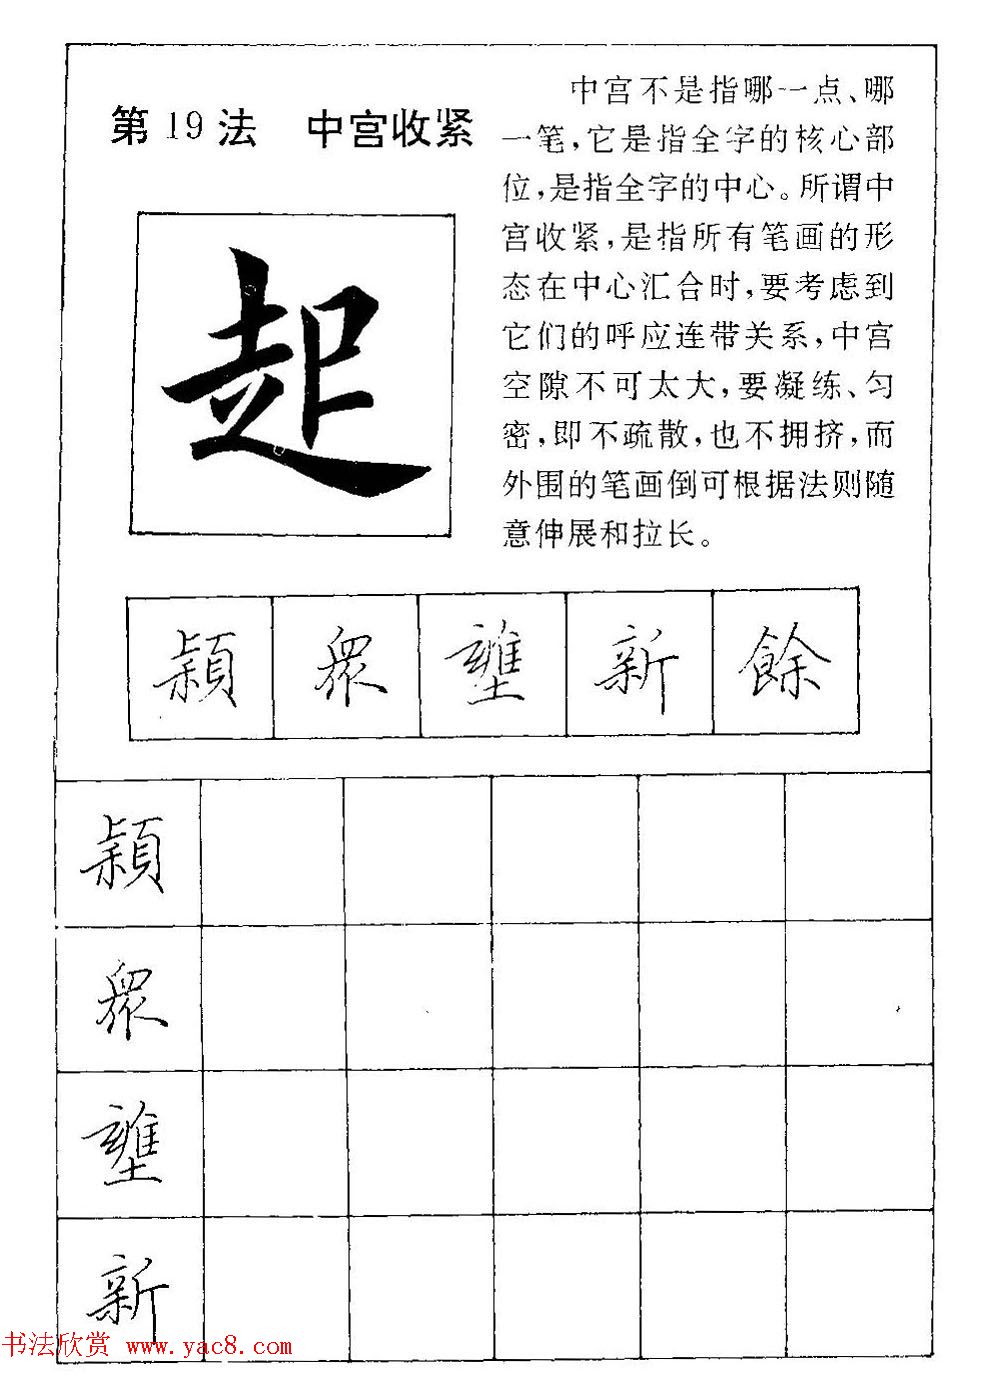 第19法 中宫收紧
中宫不是指哪一点、哪
一笔,它是指全字的核心部
位,是指全字的中心。所谓中
宫收紧,是指所有笔画的形
态在中心汇合时,要考虑到
它们的呼应连带关系,中宫
空隙不可太大,要凝练、匀
密,即不疏散,也不拥挤,而
外围的笔画倒可根据法则随
意伸展和拉长。
起
穎 眾 壅 新 餘
穎
眾
壅
新
书法欣赏 www.yac8.com